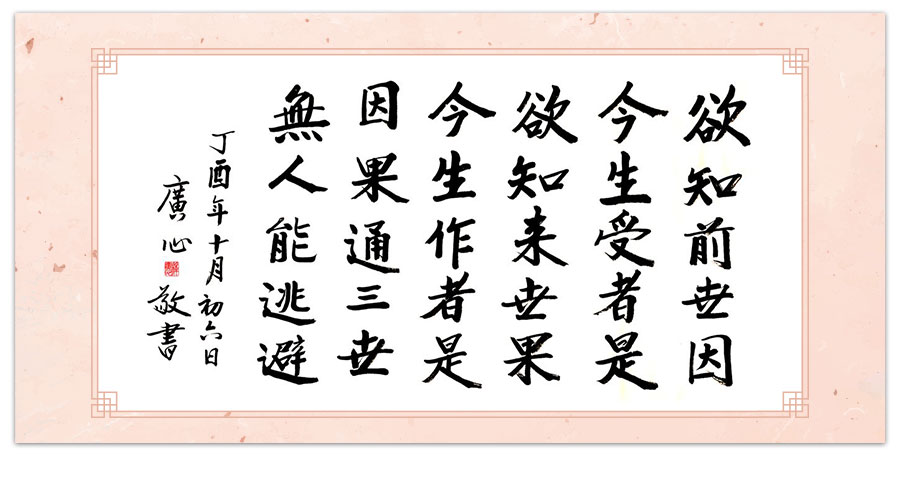 欲知前世因
今生受者是
欲知来世果
今生作者是
因果通三世
無人能逃避
丁酉年十月初六日
廣心敬書